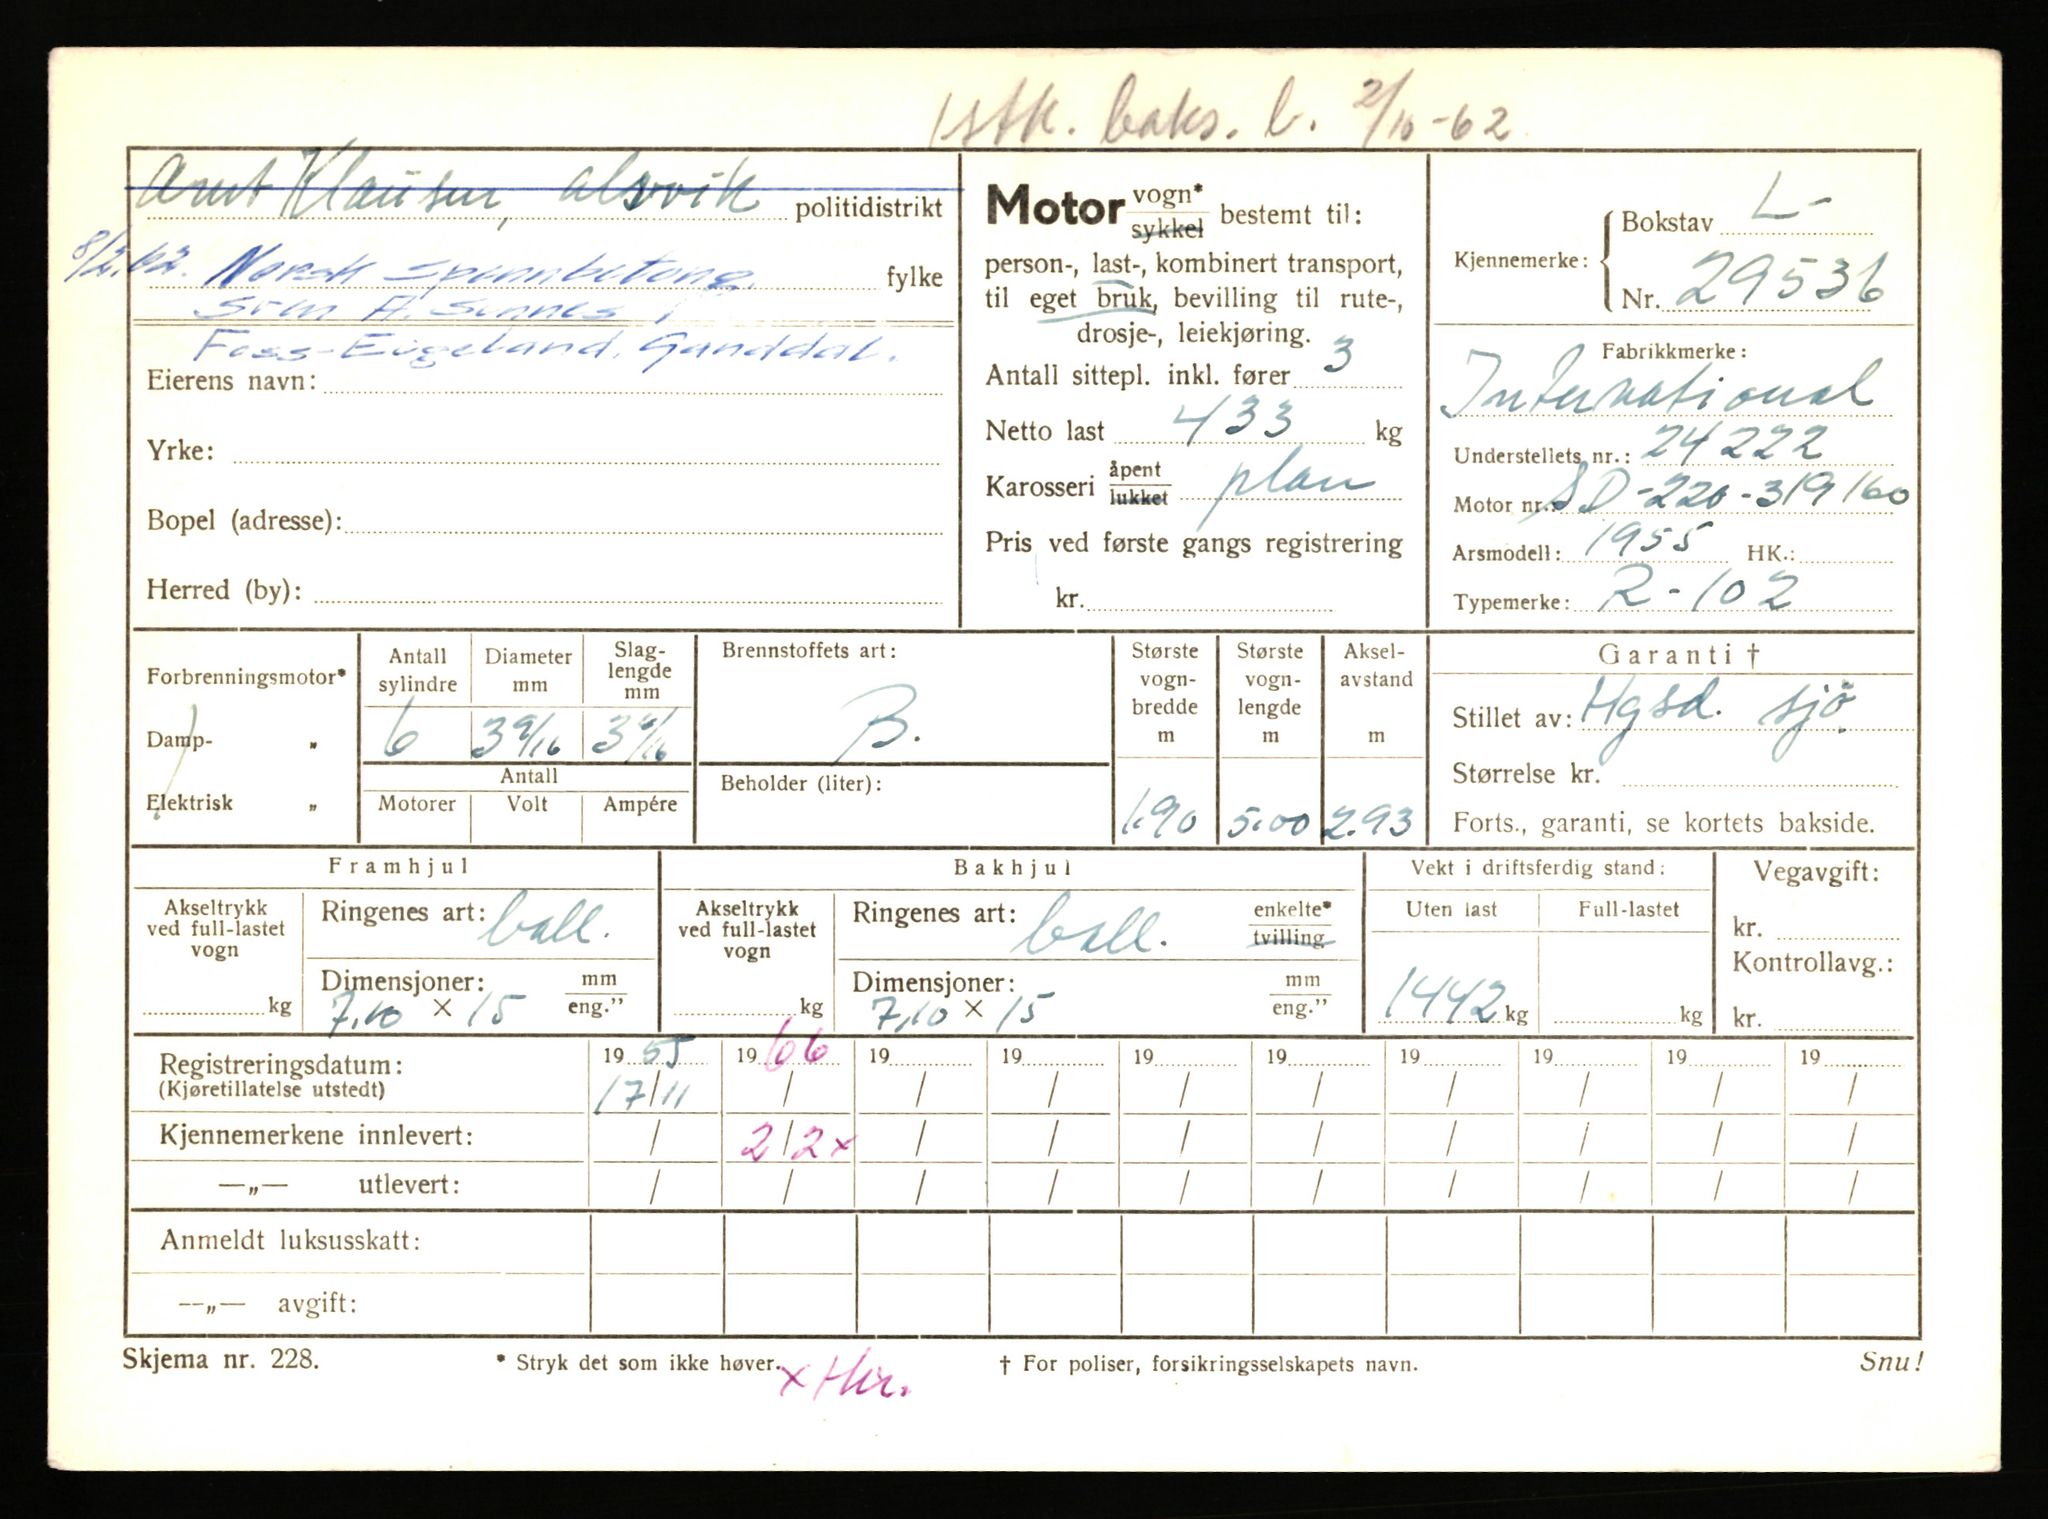 1 stk. baks. l. 2/10-62
Arnt Klausen, Alsvik politidistrikt
8/2.62. Norsk Spennbetong. fylke
Sven A. Sunnes
Foss-Eigeland, Ganddal.
Eierens navn:
Yrke:
Bopel (adresse):
Herred (by):
Motor vogn* sykkel bestemt til:
person-, last-, kombinert transport,
til eget bruk, bevilling til rute-,
drosje-, leiekjøring.
Antall sittepl. inkl. fører 3
Netto last 433 kg
Karosseri åpent lukket plan
Pris ved første gangs registrering
kr.
Kjennemerke: Bokstav L-
Nr. 29536
Fabrikkmerke:
International
Understellets nr.: 24222
Motor nr.: SD-220-319160
Arsmodell: 1955 HK.:
Typemerke: R-102
Forbrenningsmotor*
Damp- „
Elektrisk „
Antall sylindre Diameter mm Slag-lengde mm
6 3 9/16 3 11/16
Antall
Motorer Volt Ampére
Brennstoffets art:
B.
Beholder (liter):
Største vogn-bredde m Største vogn-lengde m Aksel-avstand m
1.90 5.00 2.93
Garanti †
Stillet av: Hgsd. sjø
Størrelse kr.
Forts., garanti, se kortets bakside.
Framhjul
Akseltrykk ved full-lastet vogn
kg
Ringenes art: ball.
Dimensjoner: mm eng.”
7,10 × 15
Bakhjul
Akseltrykk ved full-lastet vogn
kg
Ringenes art: ball. enkelte* tvilling
Dimensjoner: mm eng.”
7,10 × 15
Vekt i driftsferdig stand:
Uten last Full-lastet
1442 kg kg
Vegavgift:
kr.
Kontrollavg.:
kr.
Registreringsdatum: 1955 1966 19 19 19 19 19 19 19 19
(Kjøretillatelse utstedt) 17/11 / / / / / / / / /
Kjennemerkene innlevert: / 2/2 x / / / / / / / /
—„— utlevert: / / / / / / / / / /
Anmeldt luksusskatt:
—„— avgift:
Skjema nr. 228. * Stryk det som ikke høver. † For poliser, forsikringsselskapets navn. Snu!